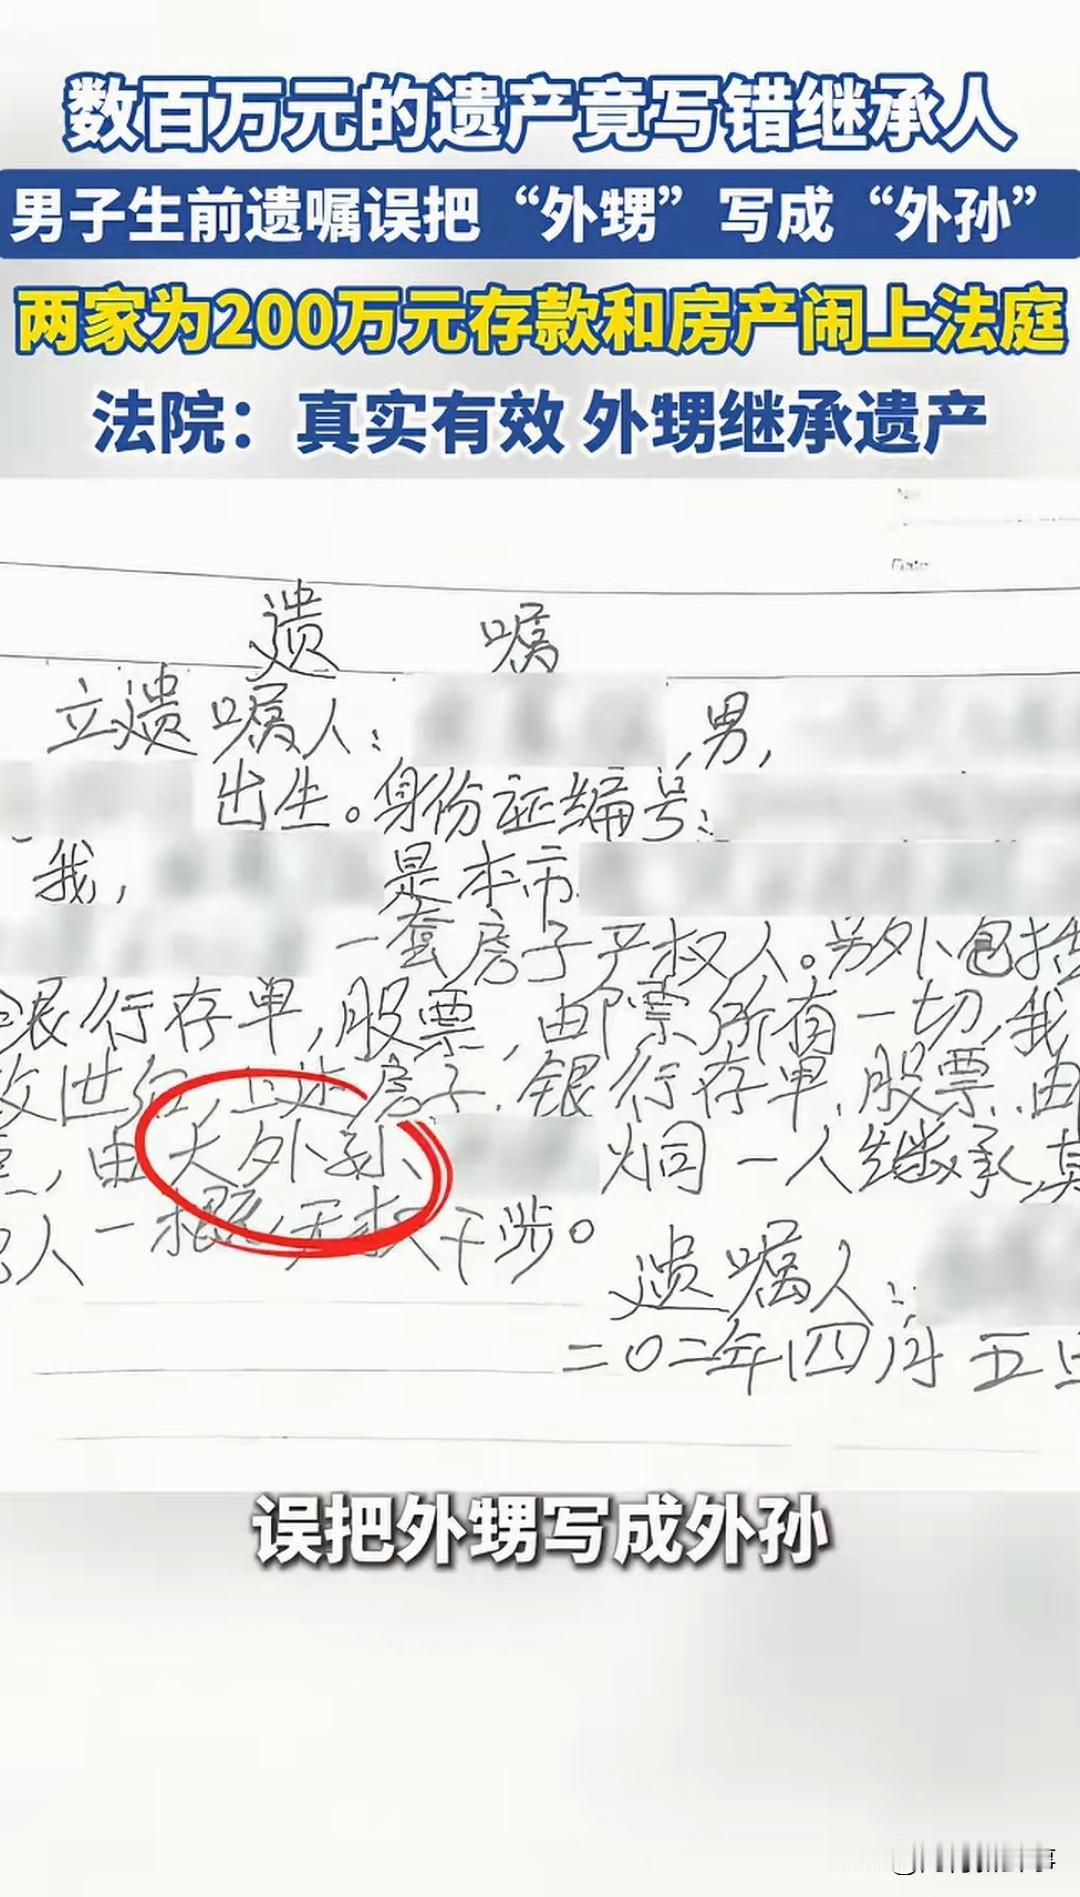 数百万元的遗产竟写错继承人
男子生前遗嘱误把“外甥”写成“外孙”
两家为200万元存款和房产闹上法庭
法院：真实有效 外甥继承遗产
No
Date
遗 嘱
立遗嘱人： ，男，
出生。身份证编号：
我， 是本市
一套房子产权人。另外包括
银行存单，股票，邮票所有一切，我
故世后，上述房子、银行存单、股票、由
，由大外孙、 炯一人继承，其
他人一概无权干涉。
遗嘱人：
二〇二年四月五日
误把外甥写成外孙